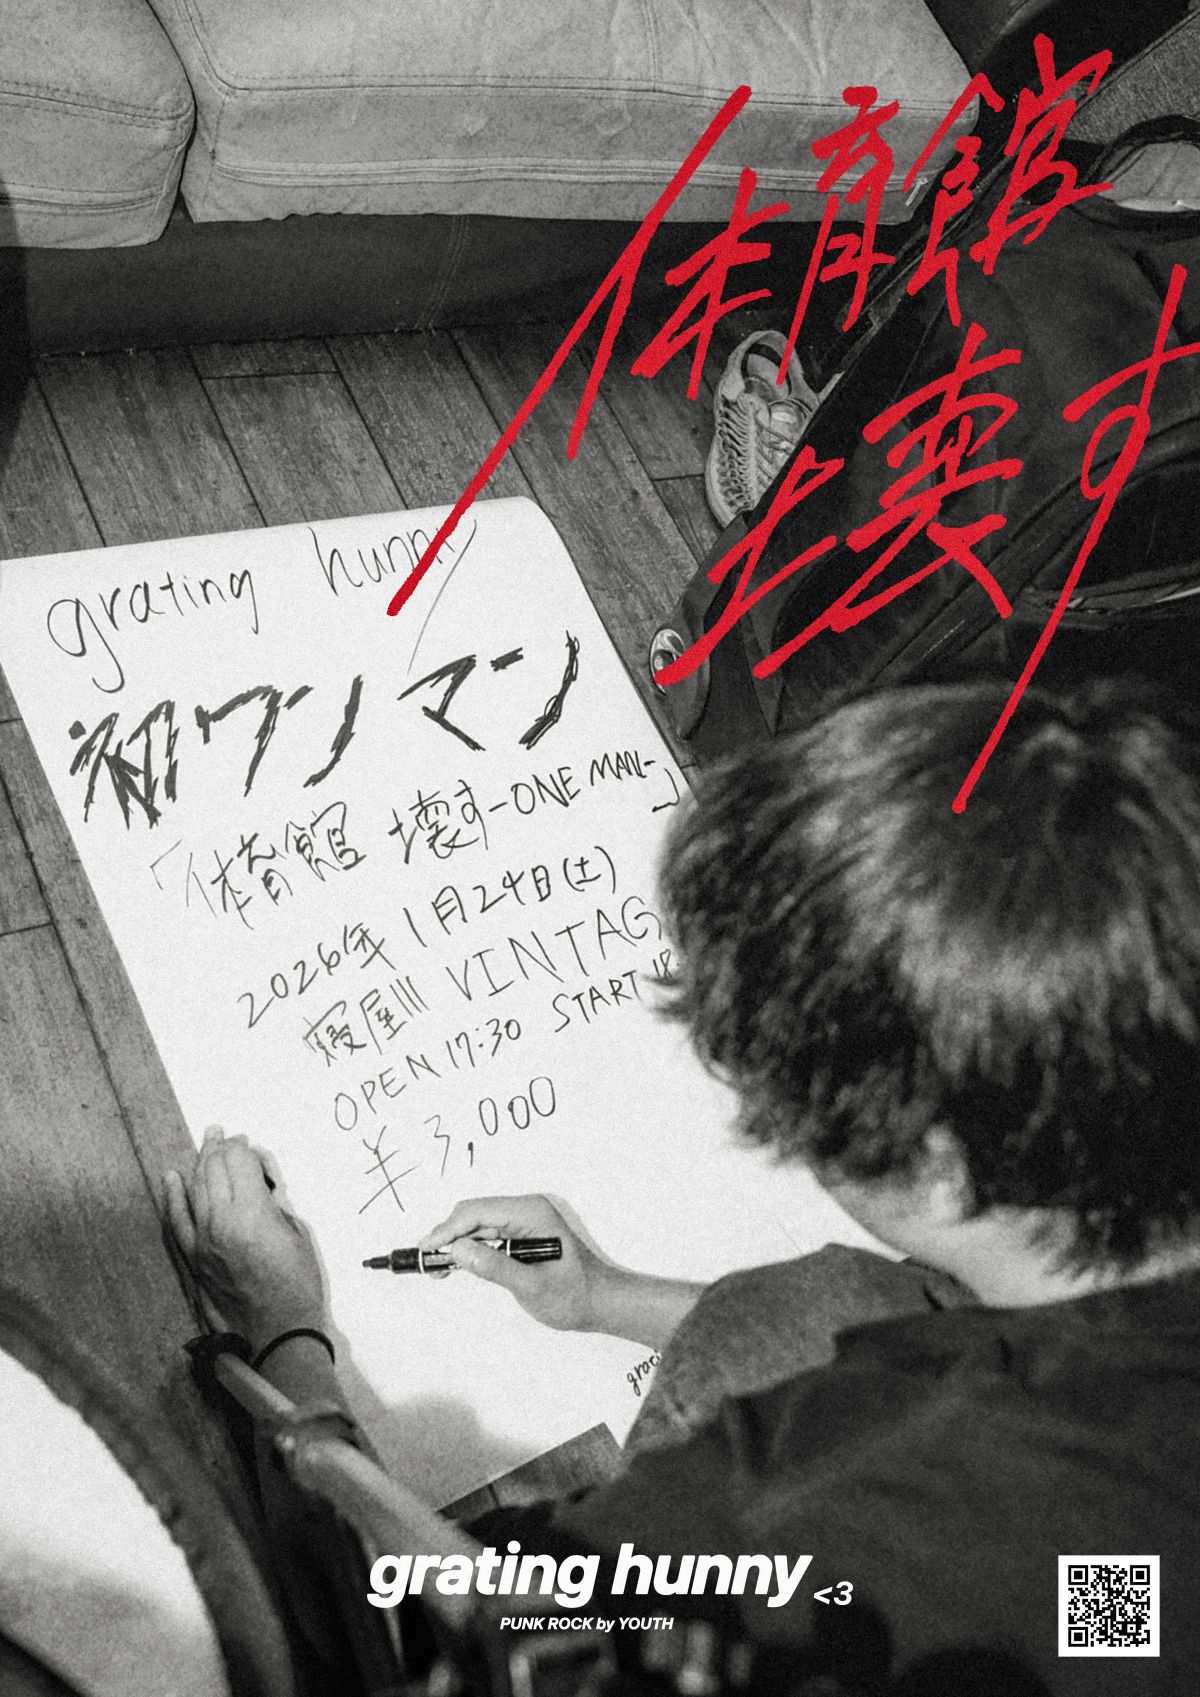 体育館
壊す
grating hunny
初ワンマン
「体育館 壊す-ONE MAN-」
2026年 1月24日(土)
寝屋川 VINTAG
OPEN 17:30 START 18:
¥3,000
grati
grating hunny <3
PUNK ROCK by YOUTH